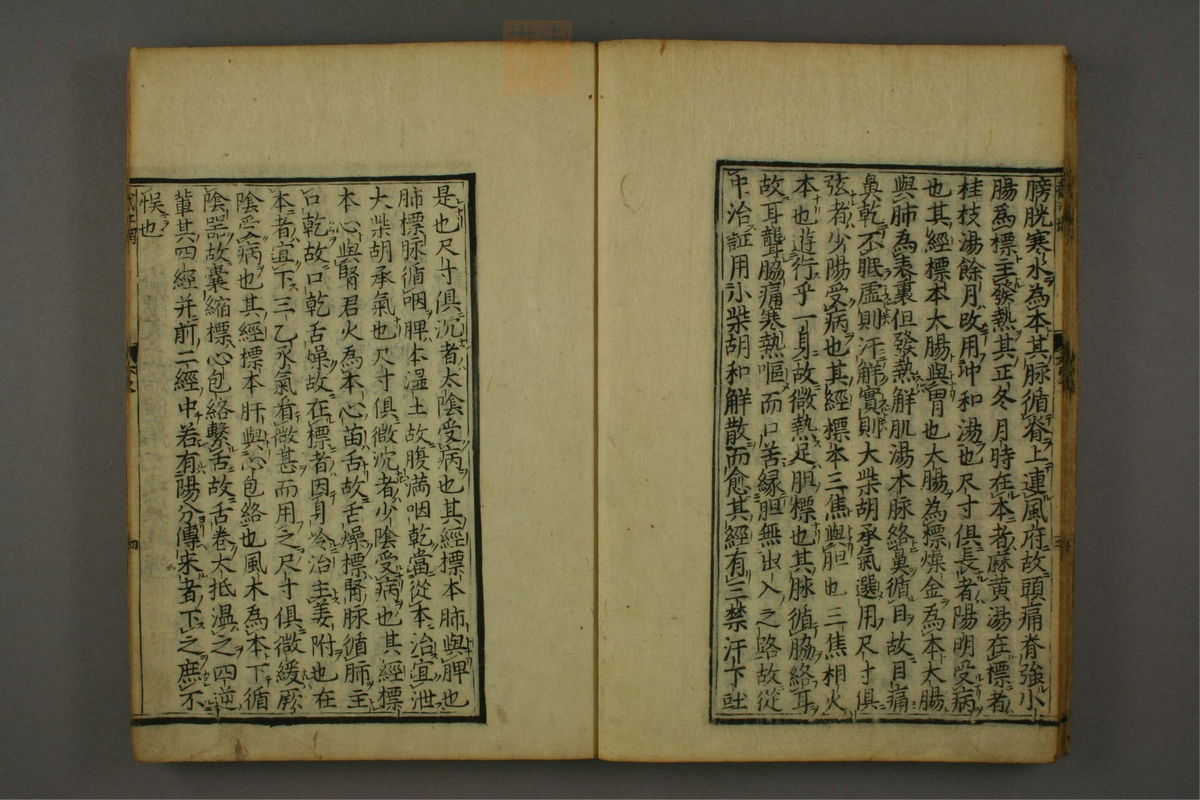 膀胱寒水為本其脉循脊上連風府故頭痛脊強小
腸為標主發熱其正冬月時在本者麻黄湯在標者
桂枝湯餘月改用冲和湯也尺寸俱長者陽明受病
也其經標本大腸與胃也大腸為標燥金為本大腸
與肺為表裏但發熱解肌湯本脉絡鼻循目故目痛
鼻乾不眠虚則汗解實則大柴胡承氣選用尺寸俱
弦者少陽受病也其經標本三焦與胆也三焦相火
本也遊行乎一身故微熱足胆標也其脉循脇絡耳
故耳聾脇痛寒熱嘔而口苦縁胆無出入之路故從
中治証用小柴胡和解散而愈其經有三禁汗下吐
是也尺寸俱沉者太陰受病也其經標本肺與脾也
肺標脉循咽脾本湿土故腹満咽乾當從本治宜泄
大柴胡承氣也尺寸俱微沉者少陰受病也其經標
本心與腎君火為本心苗舌故舌燥標腎脉循肺主
口乾故口乾舌燥故在標者因身冷治主姜附也在
本者宜下三乙承氣看微甚而用之尺寸俱微緩厥
陰受病也其經標本肝與心包絡也風木為本下循
陰噐故囊縮標心包絡繋舌故舌卷大抵温之四逆
輩其四經并前二經中若有陽分傳來者下之庶不
悮也